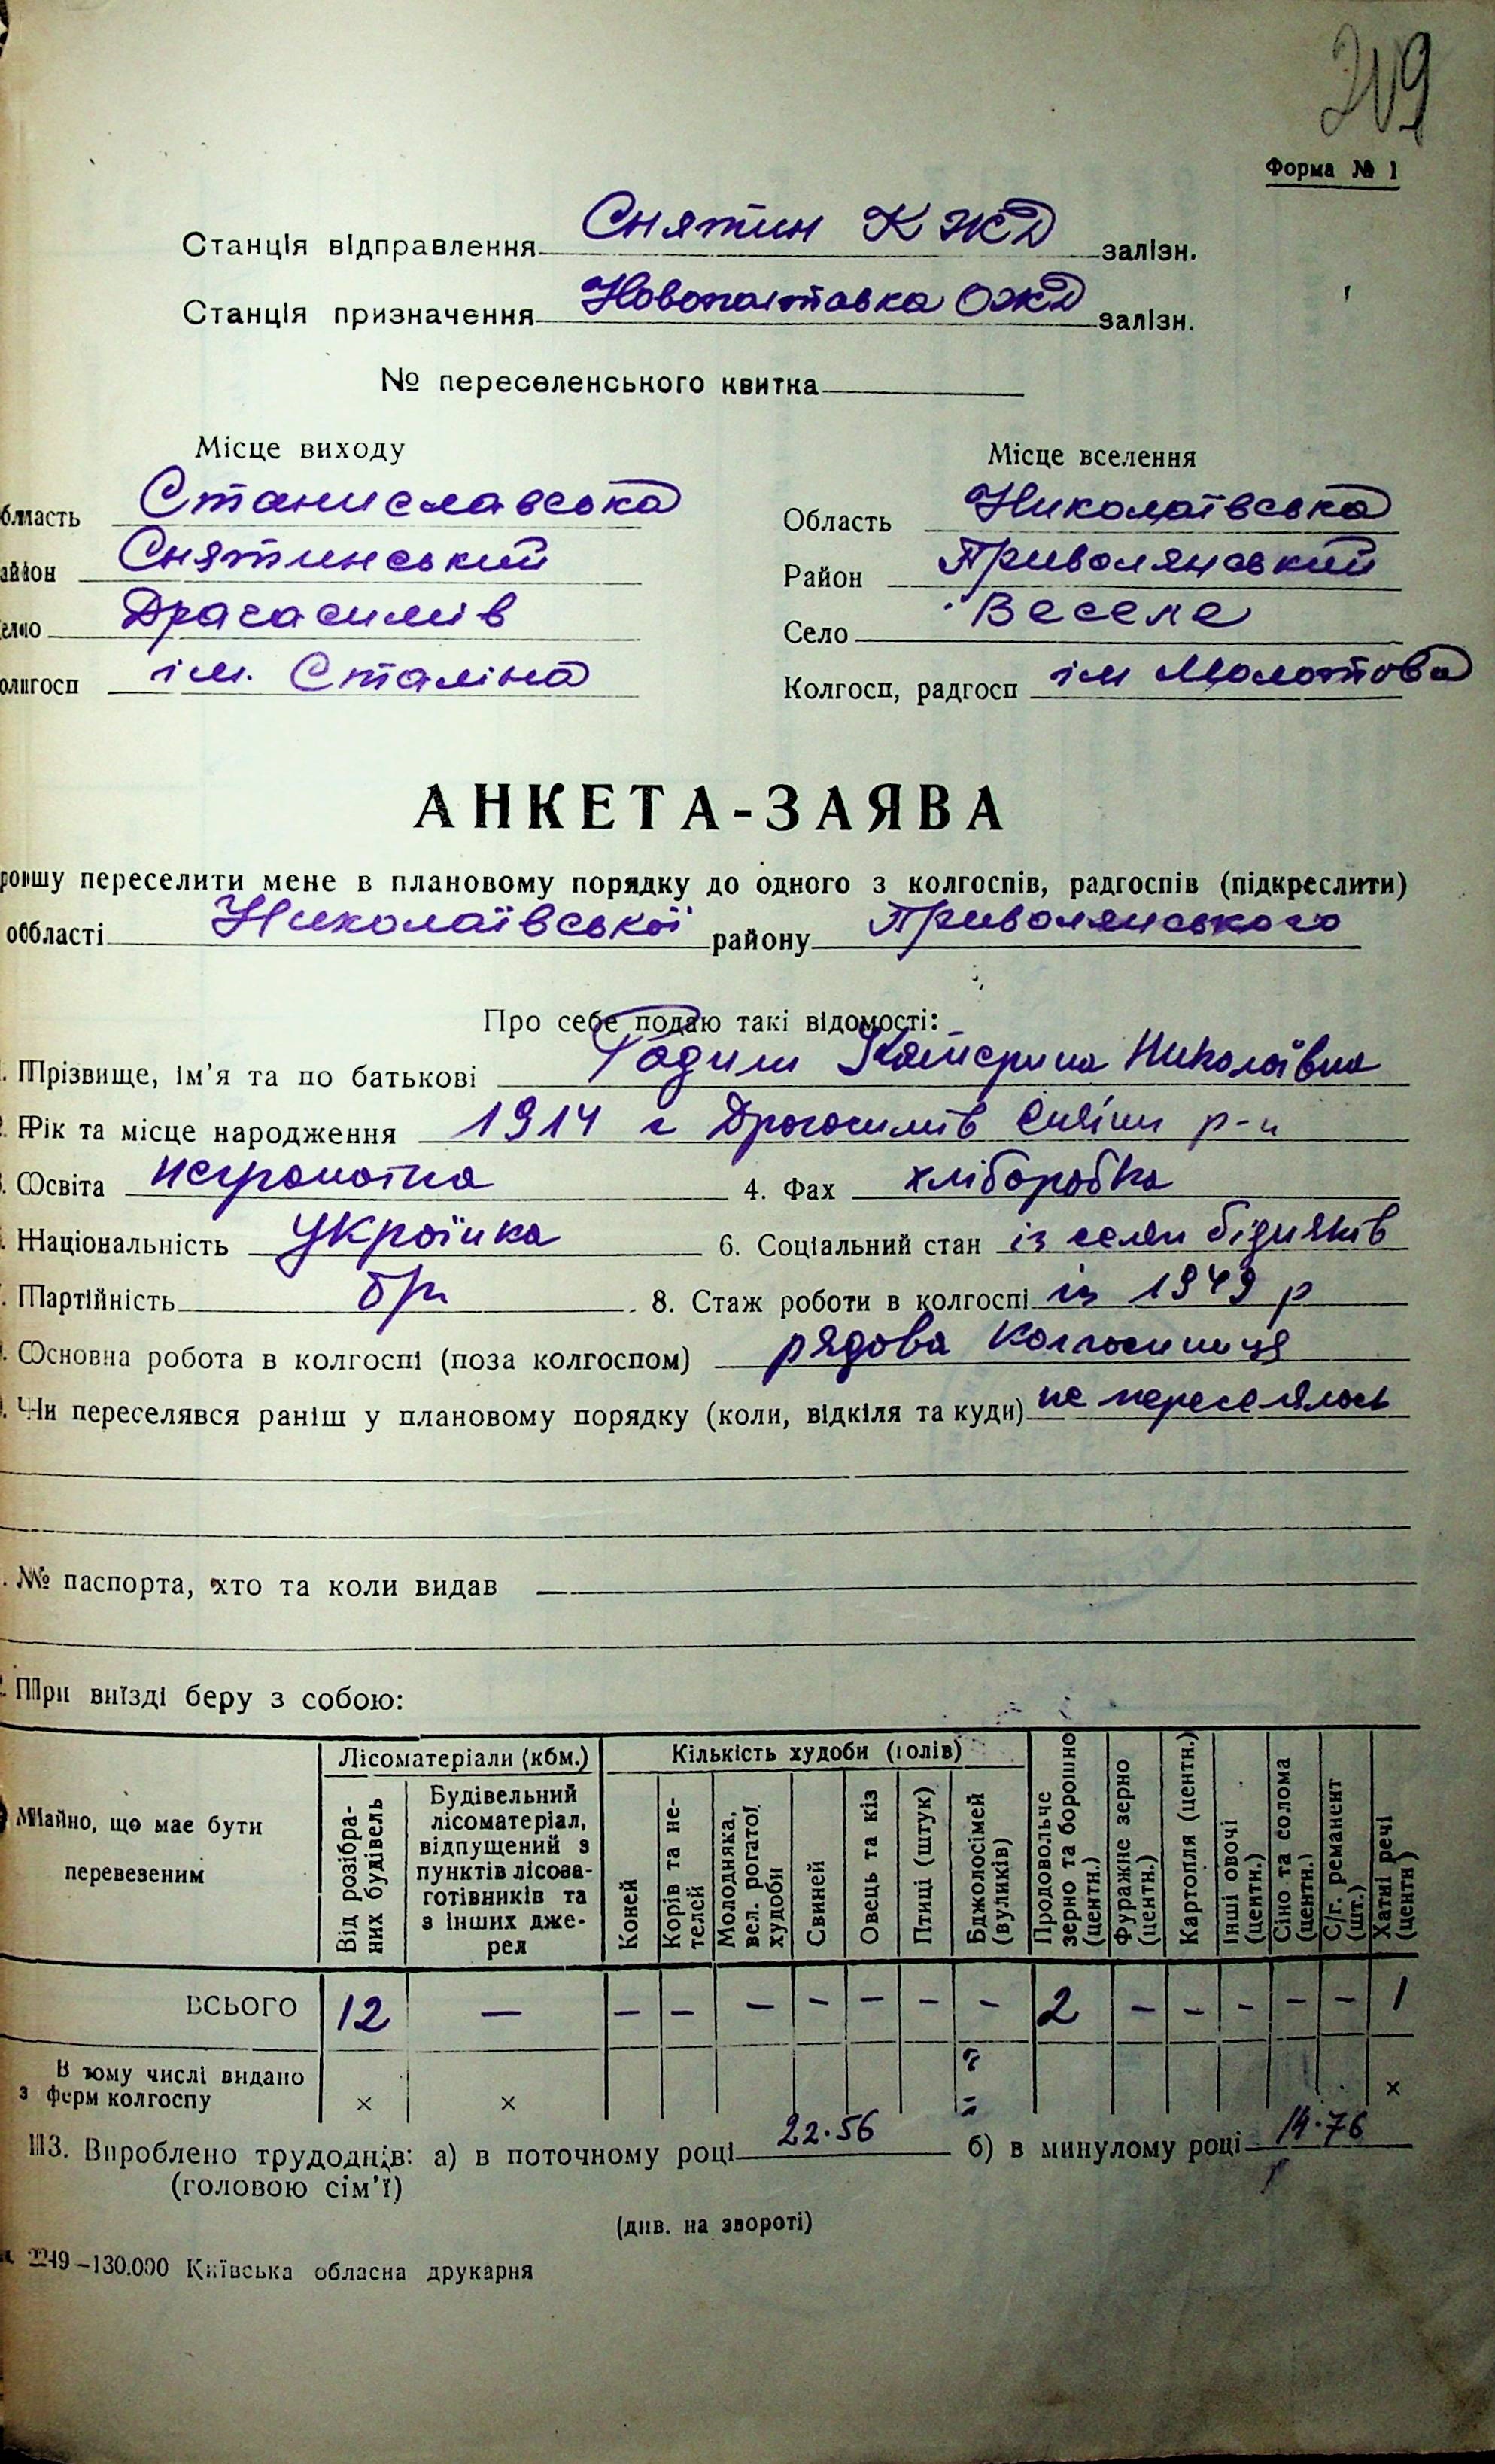 209
Форма № 1
Станція відправлення Снятин К ЖД залізн.
Станція призначення Новополтавка ОЖД залізн.
№ переселенського квитка
Місце виходу Місце вселення
область Станиславська Область Николаївська
район Снятинський Район Привольянський
село Драгасимів Село Веселе
колгосп ім. Сталіна Колгосп, радгосп ім Молотова
АНКЕТА-ЗАЯВА
рошу переселити мене в плановому порядку до одного з колгоспів, радгоспів (підкреслити)
області Николаївської району Приволянського
Про себе подаю такі відомості:
Прізвище, ім’я та по батькові Катерина Николаївна
Рік та місце народження 1914 г Драгасимів р-н
Освіта неграмотна 4. Фах хліборобка
Національність Українка 6. Соціальний стан із селян бідняків
Партійність бп 8. Стаж роботи в колгоспі із 1949 р
Основна робота в колгоспі (поза колгоспом) рядова колгоспниця
Чи переселявся раніш у плановому порядку (коли, відкіля та куди) не переселялась
№ паспорта, хто та коли видав
При виїзді беру з собою:
Майно, що має бути перевезеним
Лісоматеріали (кбм.) Кількість худоби (голів)
Від розібраних будівель
Будівельний лісоматеріал, відпущений з пунктів лісозаготівників та з інших джерел
Коней
Корів та нетелей
Молодняка, вел. рогатої худоби
Свиней
Овець та кіз
Птиці (штук)
Бджолосімей (вуликів)
Продовольче зерно та борошно (центн.)
Фуражне зерно (центн.)
Картопля (центн.)
Інші овочі (центн.)
Сіно та солома (центн.)
С/г. реманент (шт.)
Хатні речі (центн)
ВСЬОГО 12 — — — — — — — — 2 — — — — — 1
В тому числі видано
з ферм колгоспу × × ×
13. Вироблено трудоднів: а) в поточному році 22.56 б) в минулому році 14.76
(головою сім’ї)
(див. на звороті)
2249–130.000 Київська обласна друкарня